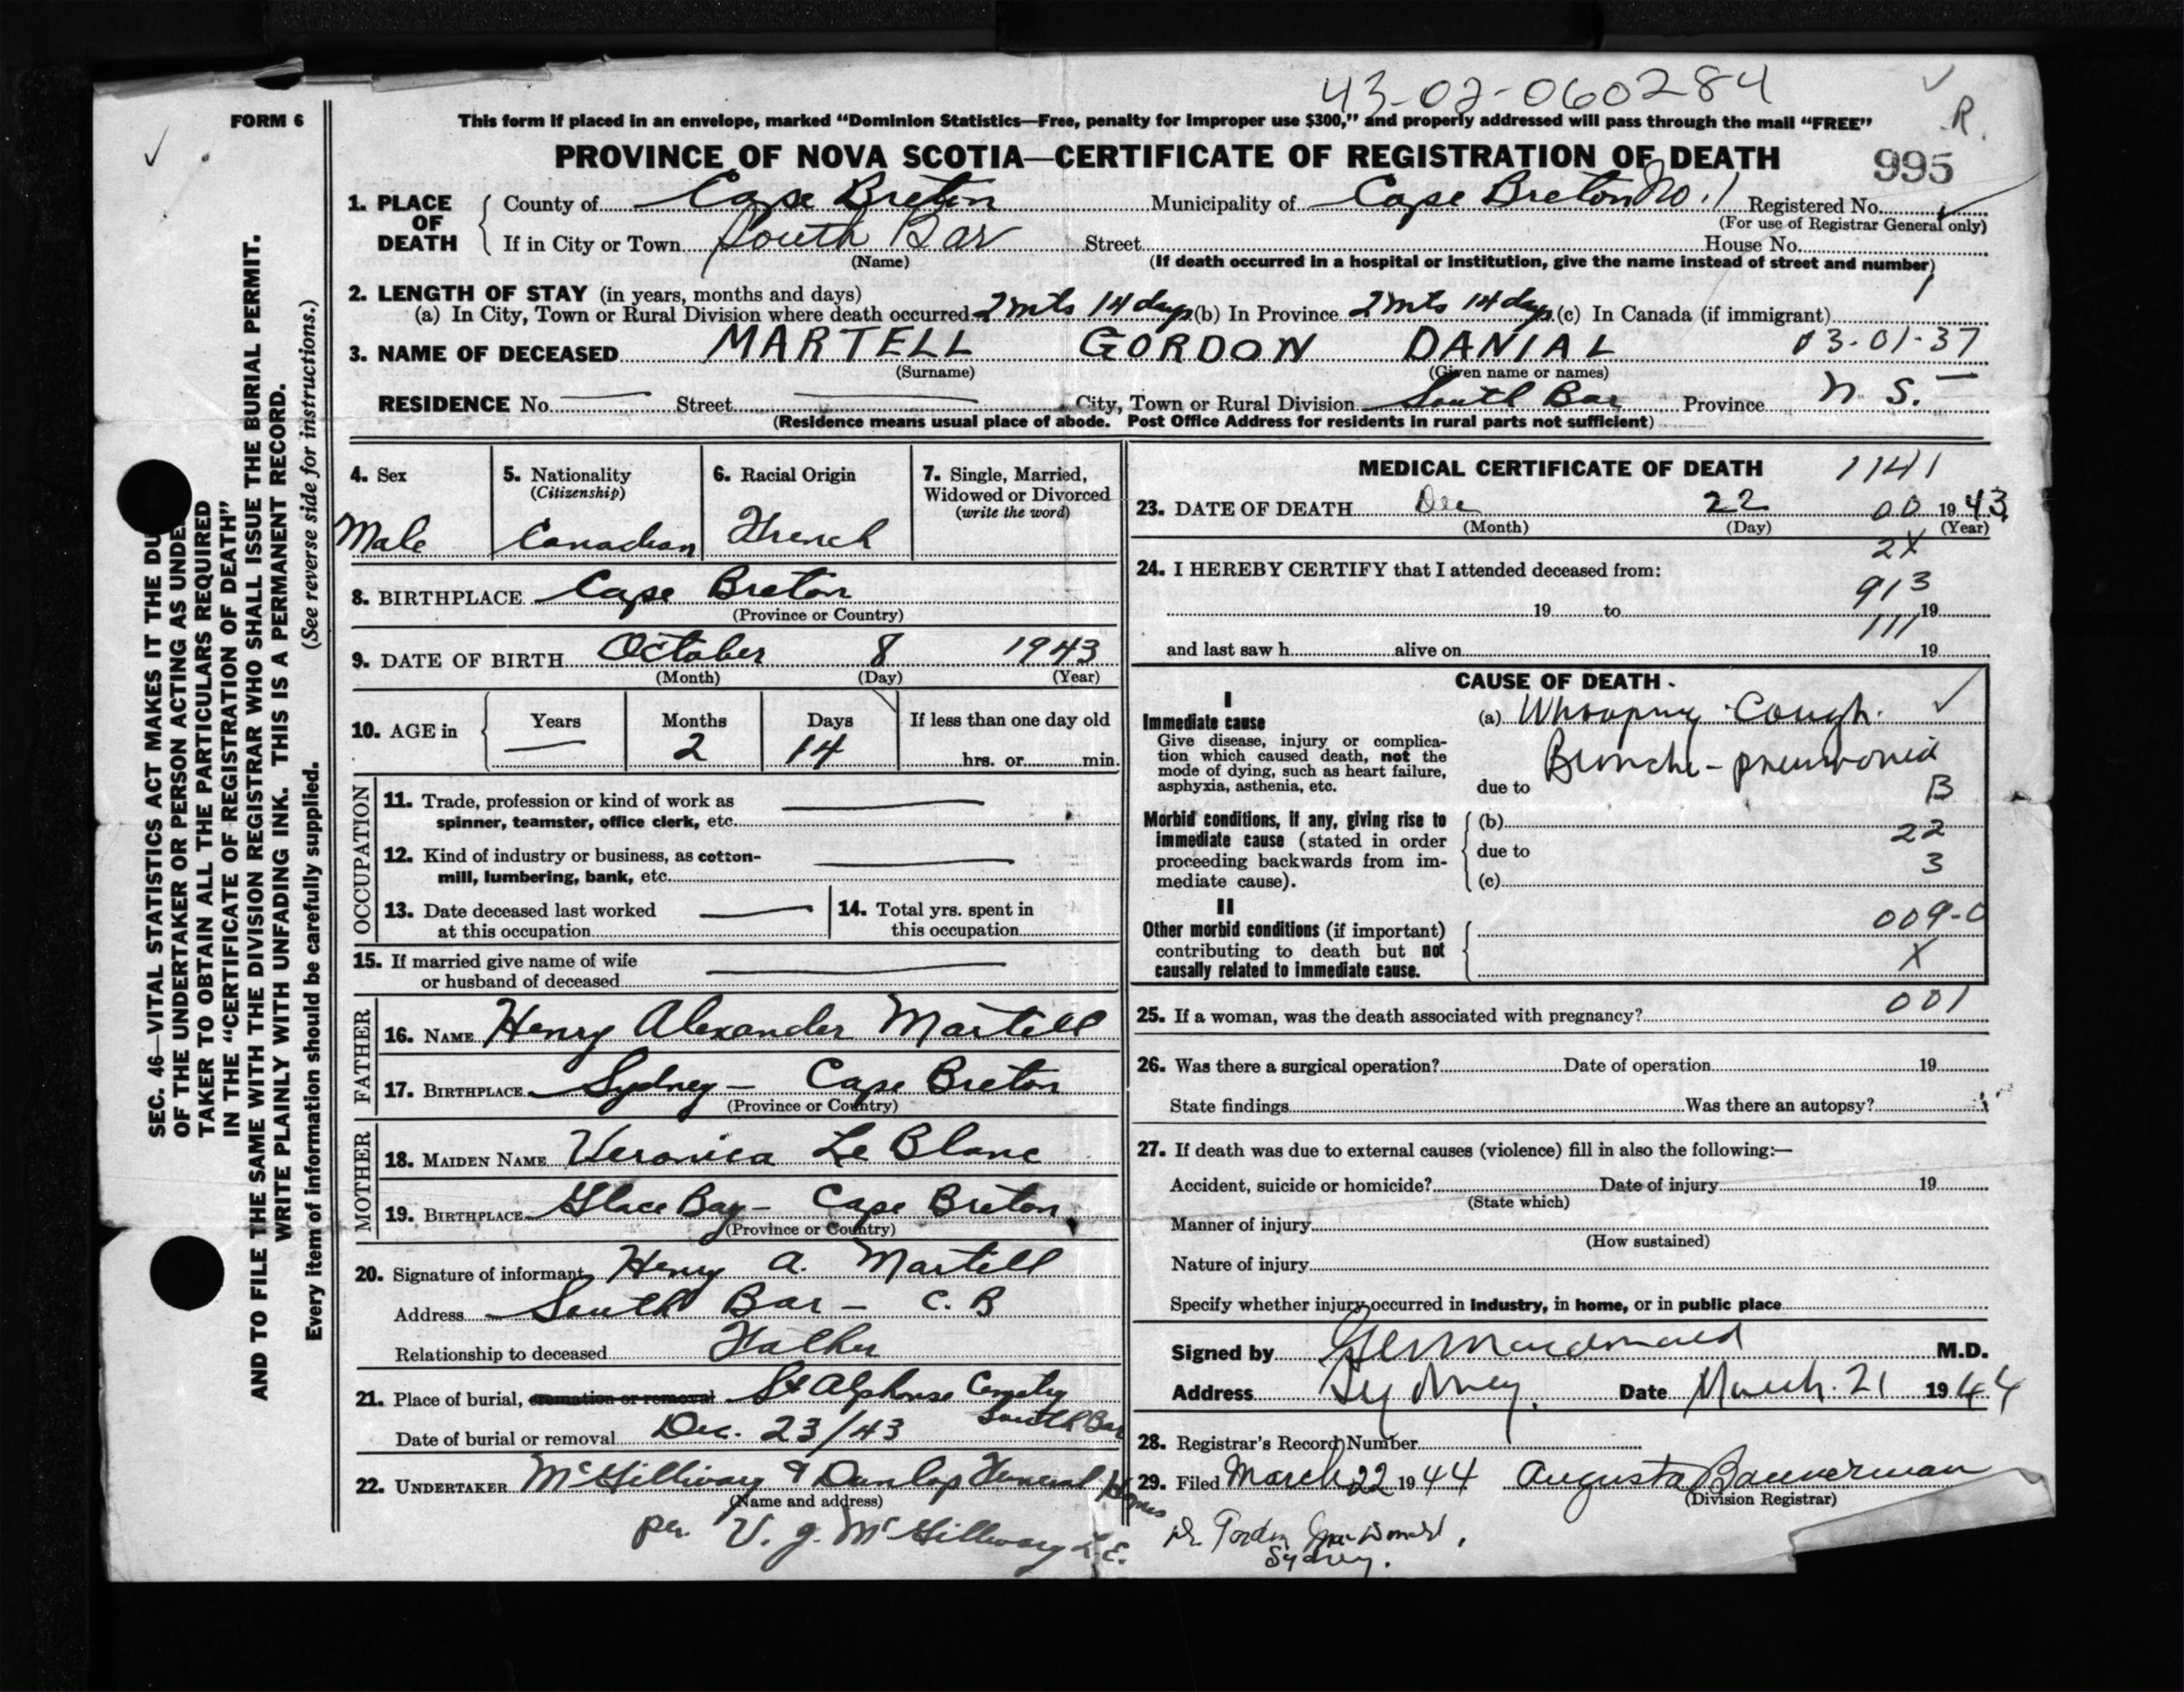 43-02-060284
R.
FORM 6
This form if placed in an envelope, marked “Dominion Statistics—Free, penalty for improper use $300,” and properly addressed will pass through the mail “FREE”
PROVINCE OF NOVA SCOTIA—CERTIFICATE OF REGISTRATION OF DEATH 995
1. PLACE OF DEATH
County of Cape Breton Municipality of Cape Breton No. 1 Registered No.
(For use of Registrar General only)
If in City or Town South Bar Street House No.
(Name) (If death occurred in a hospital or institution, give the name instead of street and number)
2. LENGTH OF STAY (in years, months and days)
(a) In City, Town or Rural Division where death occurred 2 mts 14 days (b) In Province 2 mts 14 days (c) In Canada (if immigrant)
3. NAME OF DECEASED MARTELL GORDON DANIAL 03-01-37
(Surname) (Given name or names)
RESIDENCE No. — Street — City, Town or Rural Division South Bar Province N. S.
(Residence means usual place of abode. Post Office Address for residents in rural parts not sufficient)
4. Sex
Male
5. Nationality
(Citizenship)
Canadian
6. Racial Origin
French
7. Single, Married,
Widowed or Divorced
(write the word)
8. BIRTHPLACE Cape Breton
(Province or Country)
9. DATE OF BIRTH October 8 1943
(Month) (Day) (Year)
10. AGE in Years Months Days If less than one day old
— 2 14 hrs. or min.
OCCUPATION
11. Trade, profession or kind of work as
spinner, teamster, office clerk, etc.
12. Kind of industry or business, as cotton-
mill, lumbering, bank, etc.
13. Date deceased last worked
at this occupation
14. Total yrs. spent in
this occupation
15. If married give name of wife
or husband of deceased
FATHER
16. NAME Henry Alexander Martell
17. BIRTHPLACE Sydney - Cape Breton
(Province or Country)
MOTHER
18. MAIDEN NAME Veronica Le Blanc
19. BIRTHPLACE Glace Bay - Cape Breton
(Province or Country)
20. Signature of informant Henry A. Martell
Address South Bar - C. B
Relationship to deceased Father
21. Place of burial, cremation or removal St Alphonse Cemetry
South Bar
Date of burial or removal Dec. 23/43
22. UNDERTAKER McGillivary & Dunlop Funeral Homes
(Name and address)
per V. J. McGillivary L. E.
MEDICAL CERTIFICATE OF DEATH 1141
23. DATE OF DEATH Dec 22 00 1943
(Month) (Day) (Year)
2X
24. I HEREBY CERTIFY that I attended deceased from:
913
19 to 19
111
and last saw h alive on 19
CAUSE OF DEATH
I
Immediate cause
Give disease, injury or complica-
tion which caused death, not the
mode of dying, such as heart failure,
asphyxia, asthenia, etc.
(a) Whooping Cough.
Broncho-pneumonia
due to
B
Morbid conditions, if any, giving rise to
immediate cause (stated in order
proceeding backwards from im-
mediate cause).
(b) 22
due to
3
(c)
II
Other morbid conditions (if important)
contributing to death but not
causally related to immediate cause.
009-0
X
001
25. If a woman, was the death associated with pregnancy?
26. Was there a surgical operation? Date of operation 19
State findings Was there an autopsy?
27. If death was due to external causes (violence) fill in also the following:—
Accident, suicide or homicide? Date of injury 19
(State which)
Manner of injury
(How sustained)
Nature of injury
Specify whether injury occurred in industry, in home, or in public place
Signed by Macdonald M.D.
Address Sydney. Date March. 21 1944
28. Registrar's Record Number
29. Filed March 22 1944 Augusta Bannerman
(Division Registrar)
Dr. Gordon MacDonald,
Sydney.
SEC. 46—VITAL STATISTICS ACT MAKES IT THE DU
OF THE UNDERTAKER OR PERSON ACTING AS UNDE
TAKER TO OBTAIN ALL THE PARTICULARS REQUIRED
IN THE “CERTIFICATE OF REGISTRATION OF DEATH”
AND TO FILE THE SAME WITH THE DIVISION REGISTRAR WHO SHALL ISSUE THE BURIAL PERMIT.
WRITE PLAINLY WITH UNFADING INK. THIS IS A PERMANENT RECORD.
Every item of information should be carefully supplied. (See reverse side for instructions.)